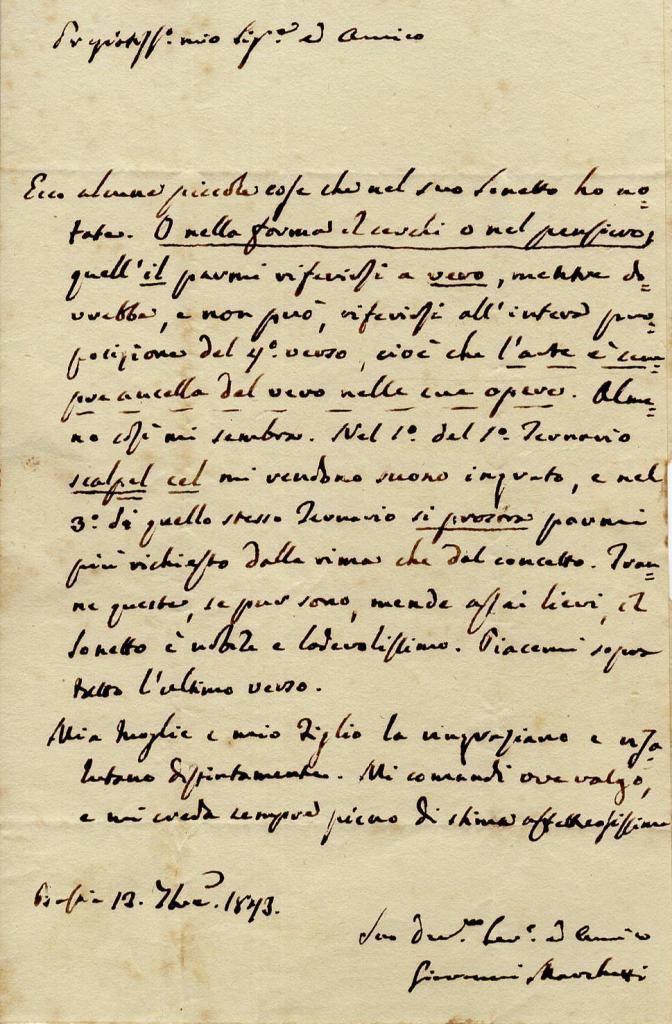 Pregiatiss.º mio Sig.re ed Amico
Ecco alcune piccole cose che nel suo Sonetto ho no=
tate. O nella forma il cerchi o nel pensiero,
quell'il parmi riferirsi a vero, mentre do=
vrebbe, e non può, riferirsi all'intera pro=
posizione del 4º verso, cioè che l'arte è sem=
pre ancella del vero nelle sue opere. Alme=
no così mi sembra. Nel 1º del 1º Ternario
scalpel cel mi rendono suono ingrato, e nel
3º di quello stesso Ternario si prostra parmi
più richiesto dalla rima che dal concetto. Tran=
ne queste, se pur sono, mende assai lievi, il
Sonetto è nobile e lodevolissimo. Piacemi sopra
tutto l'ultimo verso.
Mia Moglie e mio Figlio la ringraziano e risa
lutano distintamente. Mi comandi ove valgo,
e mi creda sempre pieno di stima affettuosissima
13. 7bre. 1843.
Suo Dev.mo Ser.e ed Amico
Giovanni Marchetti